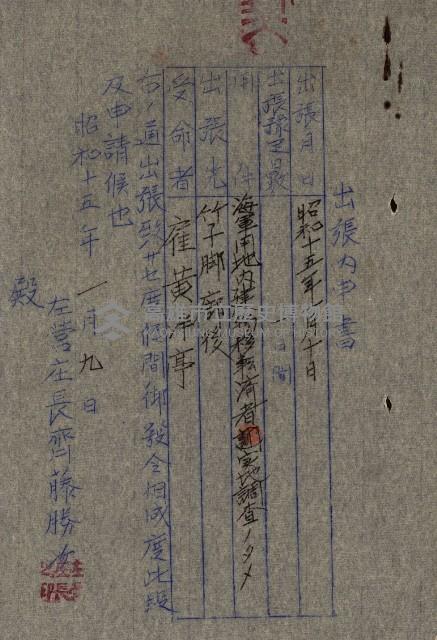 出張內申書
出張月日 昭和十五年一月十日
出張豫定 一日間
用件 海軍用地內建物移轉濟者 實地調查ノタメ
出張先 竹子脚 廍後
受命者 雇 黃 亭
右ノ通出張致サセ度候間御發令相成度此段
及申請候也
昭和十五年 一月九日
左營庄長齊藤勝
殿
高雄市立歷史博物館